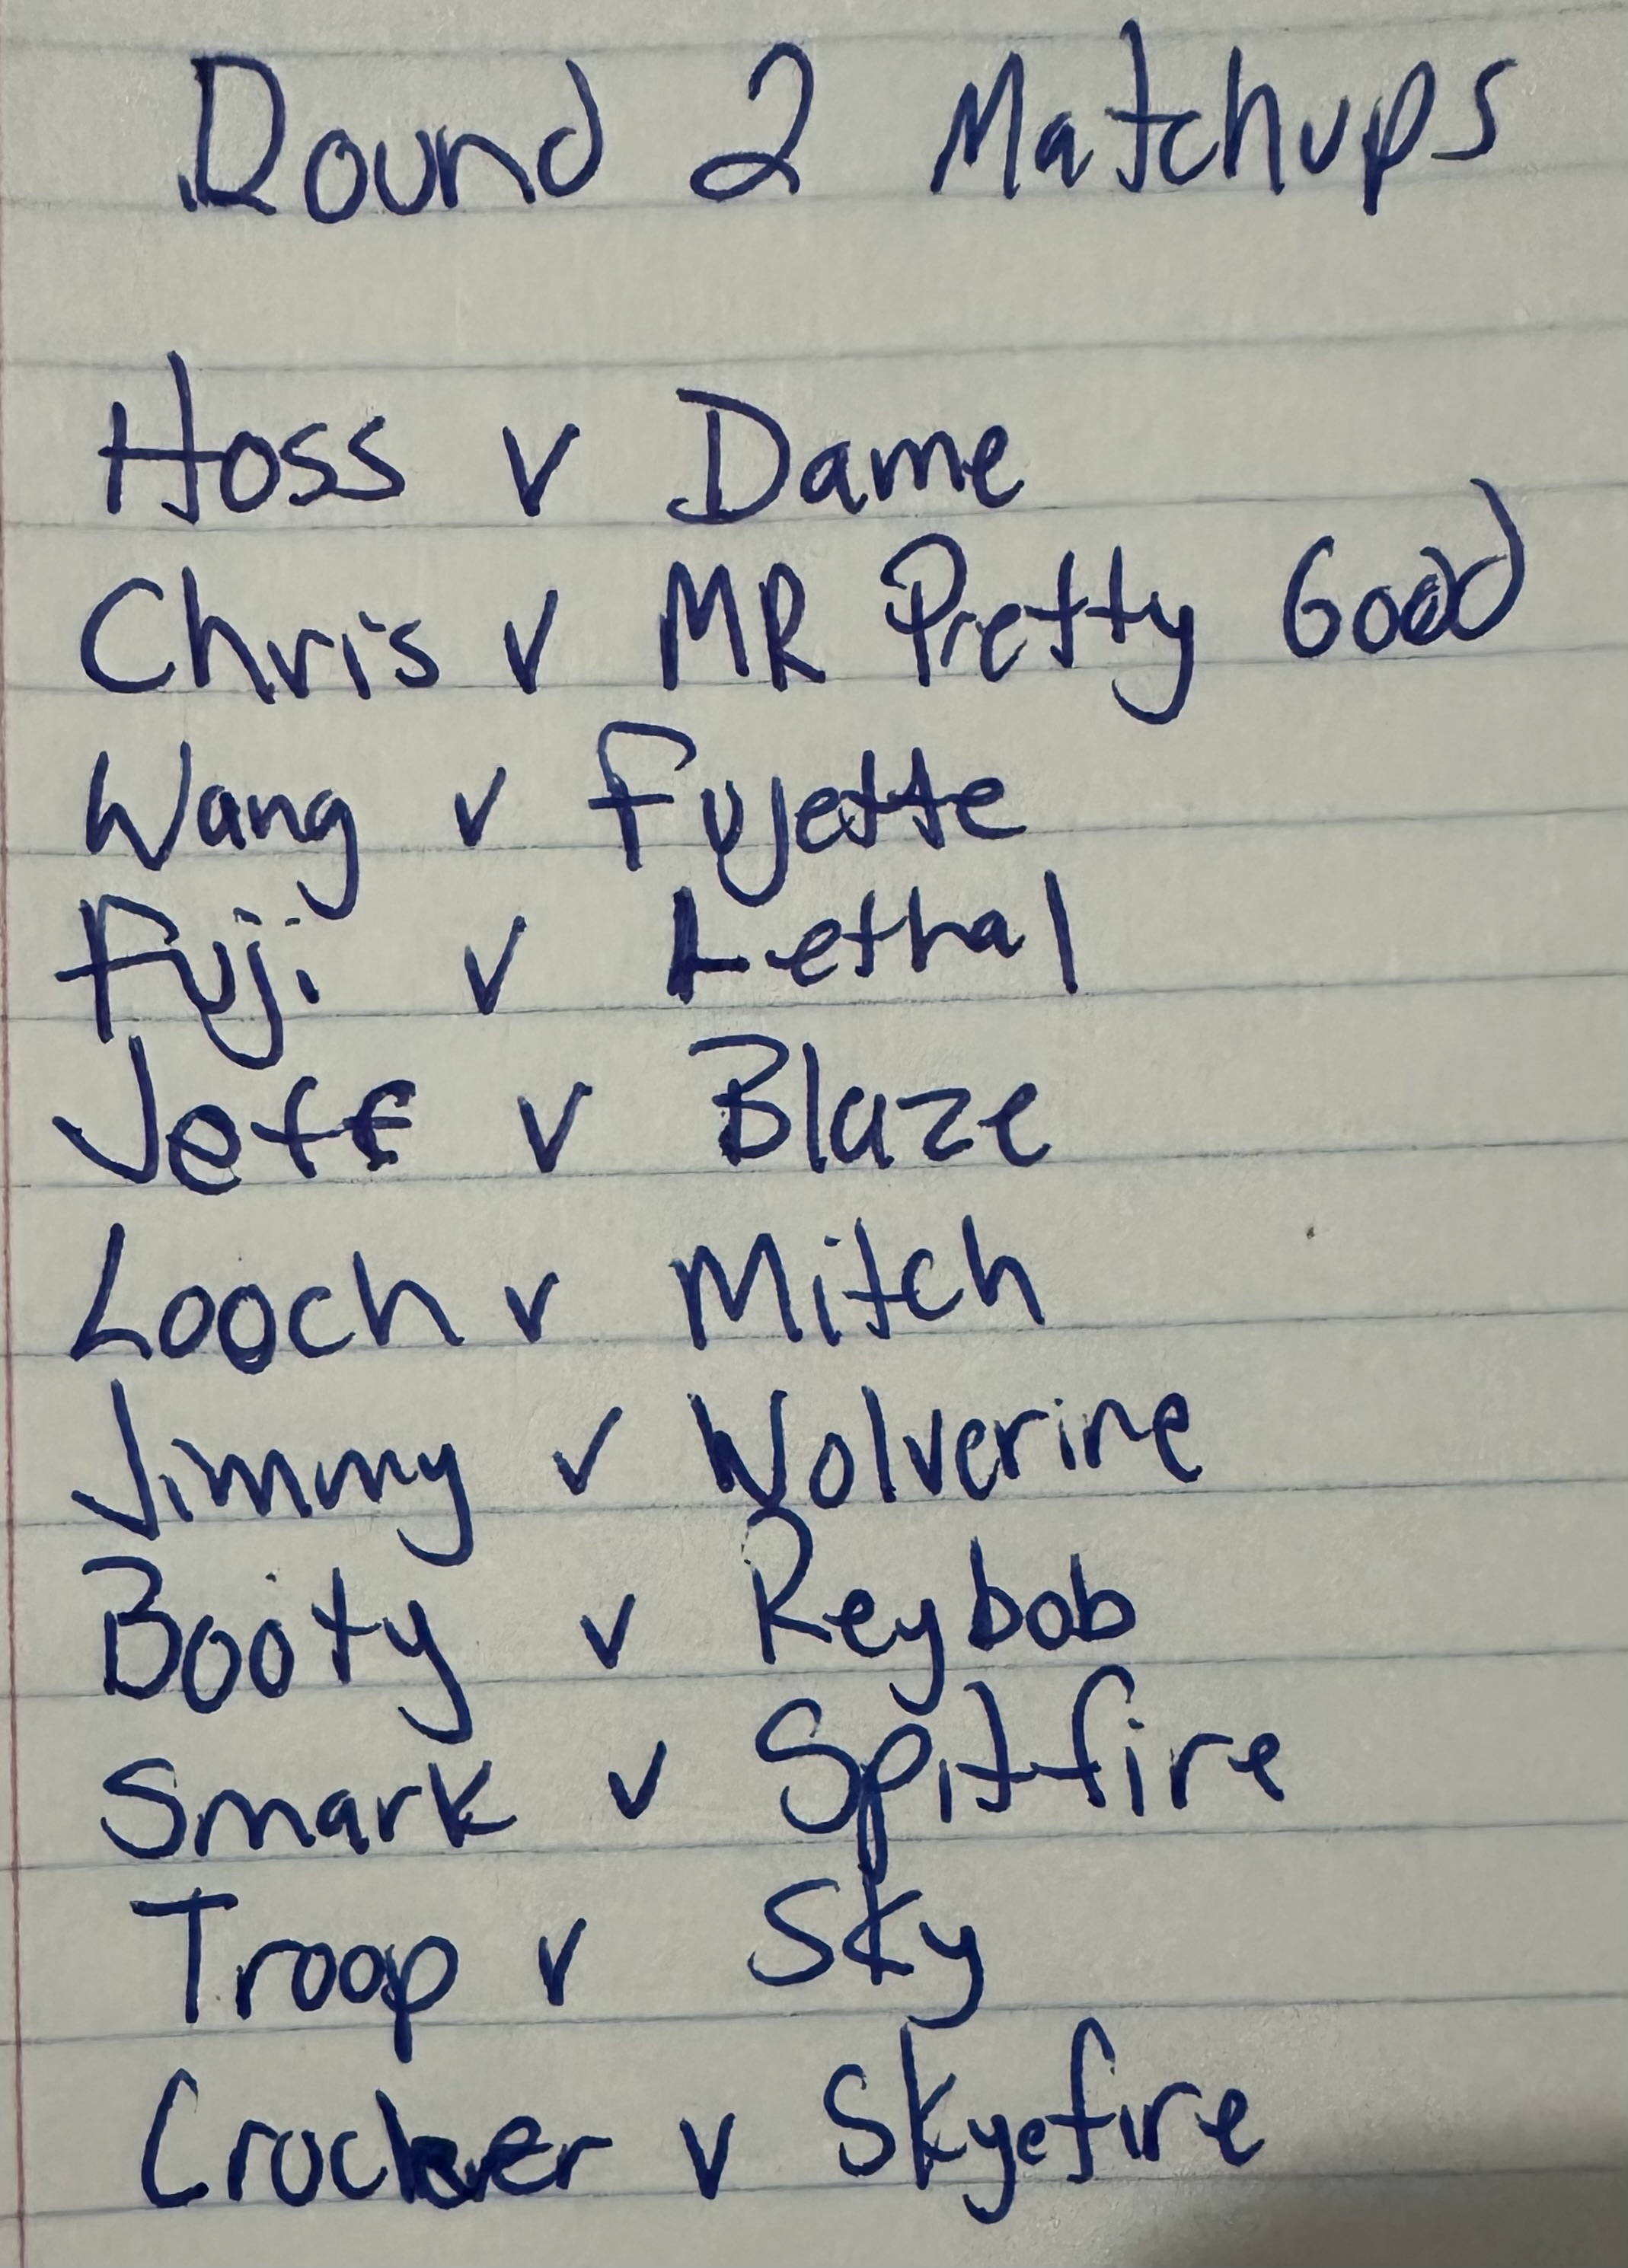 Round 2 Matchups
Hoss v Dame
Chris v MR Pretty Good
Wang v Fujette
Fuji v Lethal
Jeff v Blaze
Looch v Mitch
Jimmy v Wolverine
Booty v Keybob
Smark v Spitfire
Troop v Sky
Crocker v Skyefire